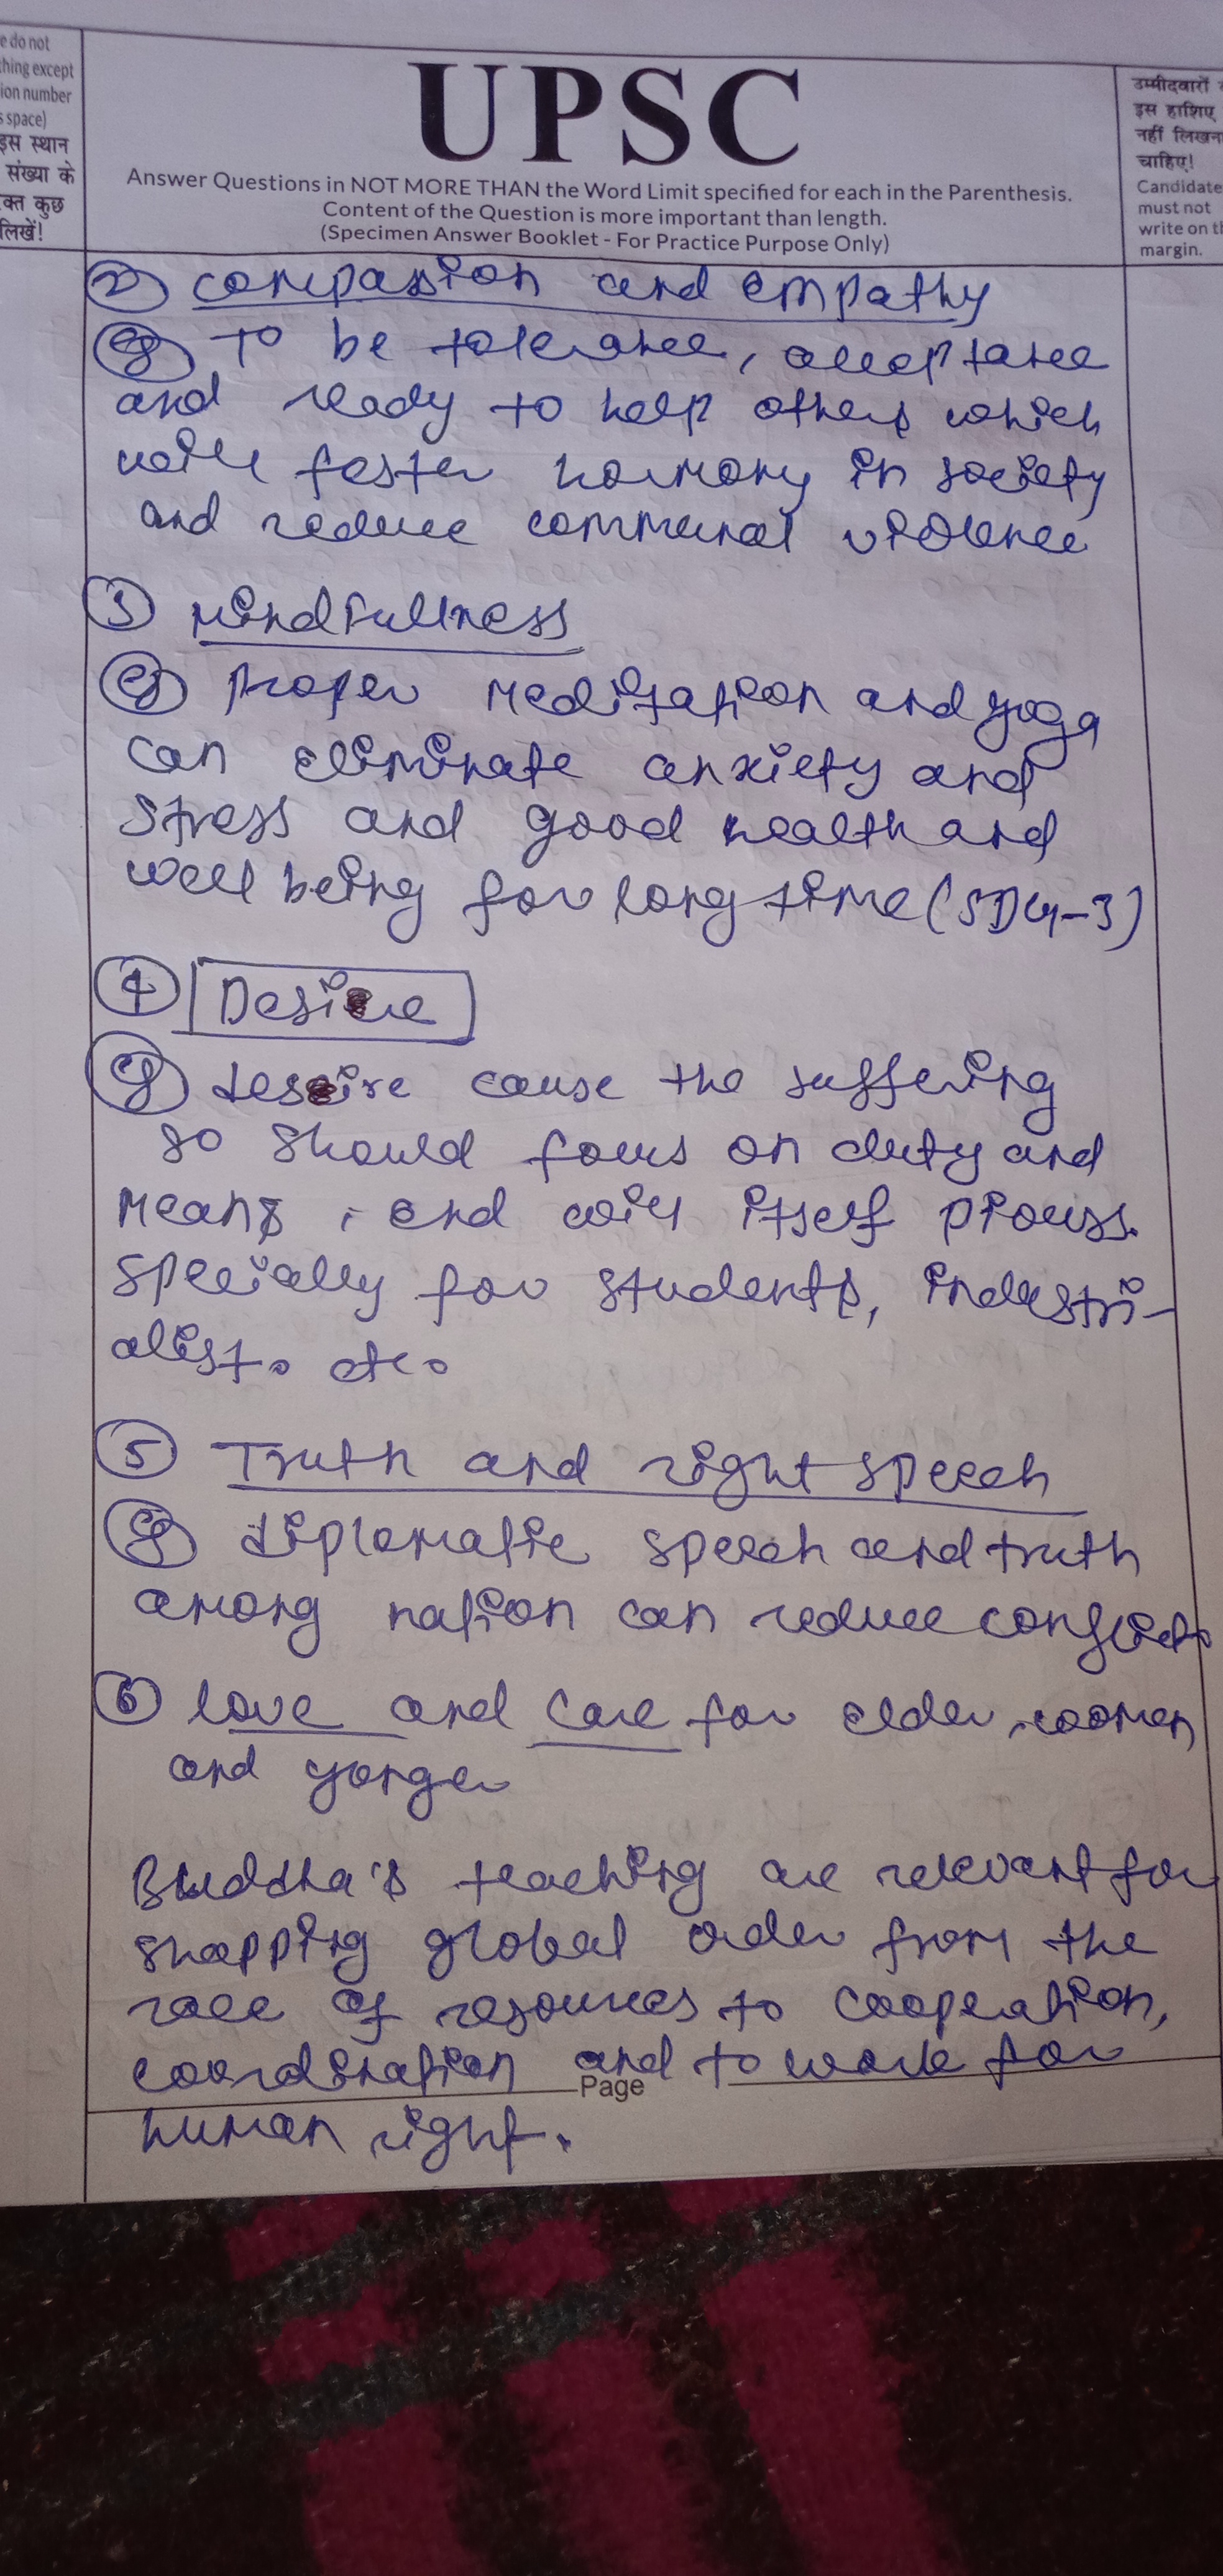 e do not
thing except
ion number
s space)
इस स्थान
संख्या के
क्त कुछ
लिखें!
UPSC
Answer Questions in NOT MORE THAN the Word Limit specified for each in the Parenthesis.
Content of the Question is more important than length.
(Specimen Answer Booklet - For Practice Purpose Only)
उम्मीदवारों
इस हाशिए
नहीं लिखना
चाहिए!
Candidate
must not
write on th
margin.
② compassion and empathy
eg To be tolerance, acceptance
and ready to help others which
will foster harmony in society
and reduce communal violence
③ Mindfullness
eg proper meditation and yoga
can eliminate anxiety and
stress and good health and
well being for long time (SDG-3)
④ Desire
eg desire cause the suffering
so should focus on duty and
means, end will itself piouss.
specially for students, industri-
alist. etc.
⑤ Truth and right speech
eg diplomatic speech and truth
among nation can reduce conflict.
⑥ love and care for elder, women
and yonger
Buddha's teaching are relevant for
shapping global order from the
race of resources to cooperation,
coordination and to work for
Page
human right.